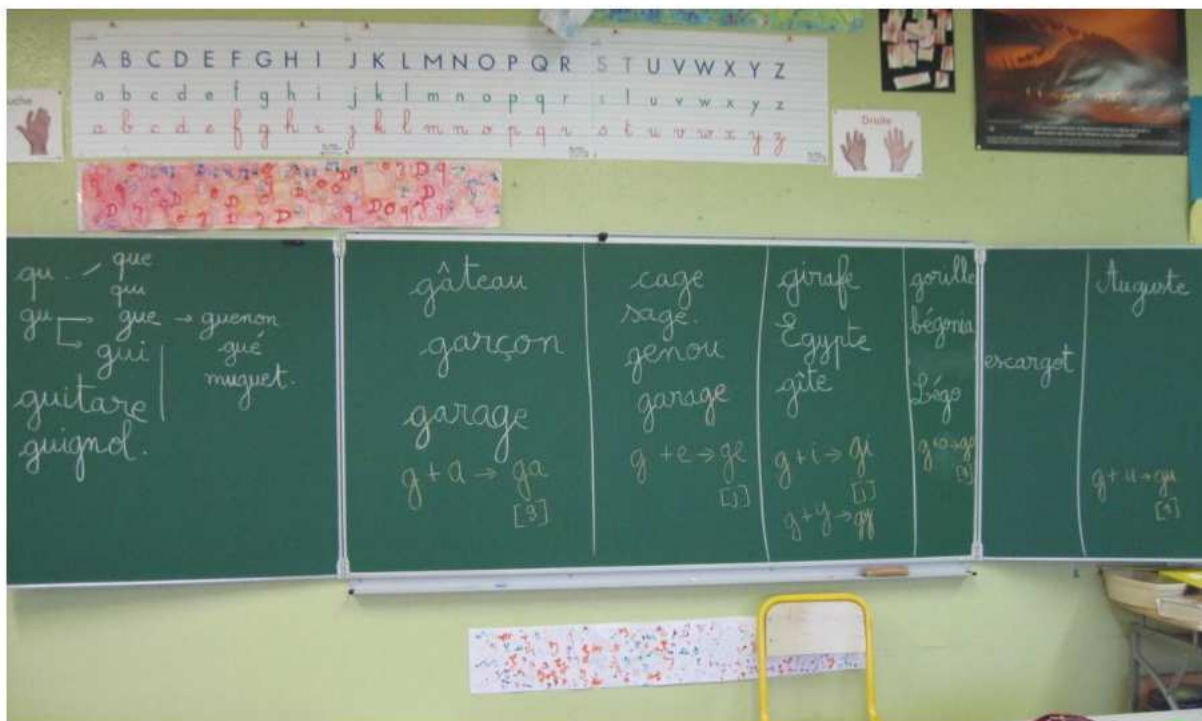 A B C D E F G H I J K L M N O P Q R S T U V W X Y Z
a b c d e f g h i j k l m n o p q r s t u v w x y z
a b c d e f g h i j k l m n o p q r s t u v w x y z
uche
Droite
qu - que
qui
gu → gue → guenon
gui
gué
muguet.
guitare
guignol.
gâteau
garçon
garage
g + a → ga
[g]
cage
sage.
genou
garage
g + e → ge
[j]
girafe
Egypte
gîte
g + i → gi
[j]
g + y → gy
gorille
bégonia
Légo
g + o → go
[g]
escargot
Auguste
g + u → gu
[g]